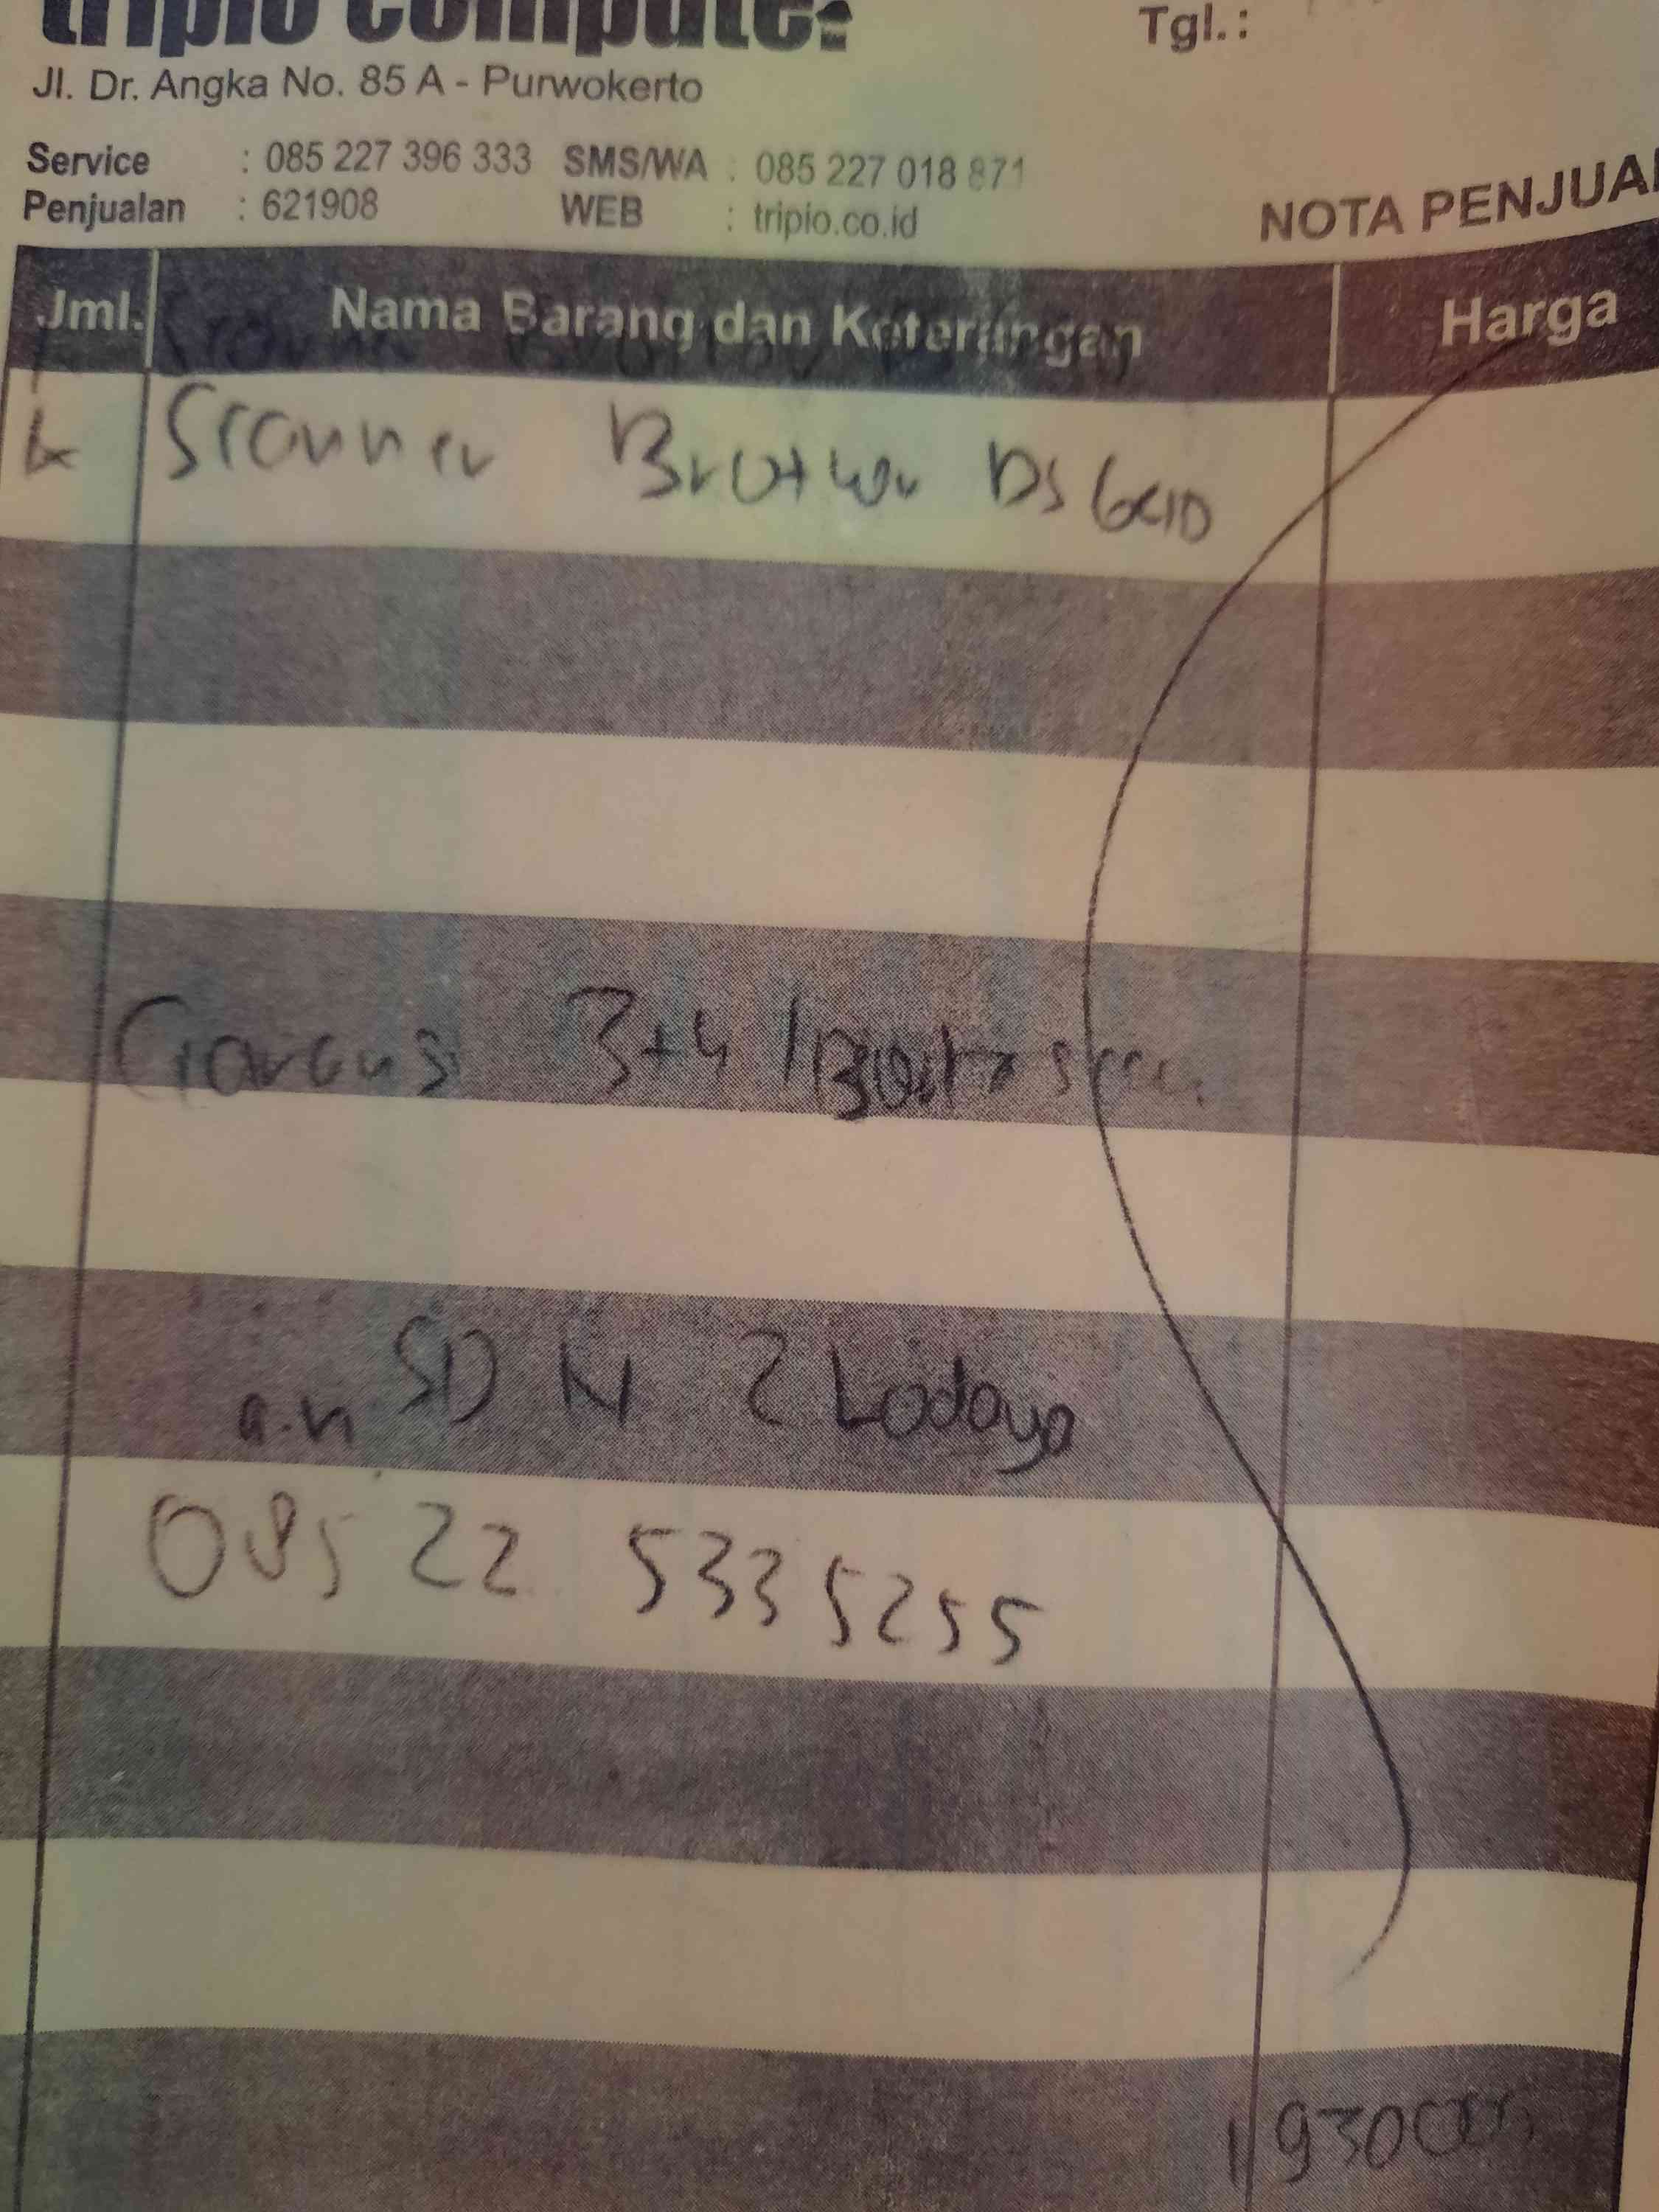 tripio computer
Tgl. :
Jl. Dr. Angka No. 85 A - Purwokerto
Service : 085 227 396 333 SMS/WA : 085 227 018 871
Penjualan : 621908 WEB : tripio.co.id
NOTA PENJUAL
Jml. Nama Barang dan Keterangan Harga
Scanner Brother DS 640
Garansi 3+4
a.n SD N 2 Lodaya
08522 5335255